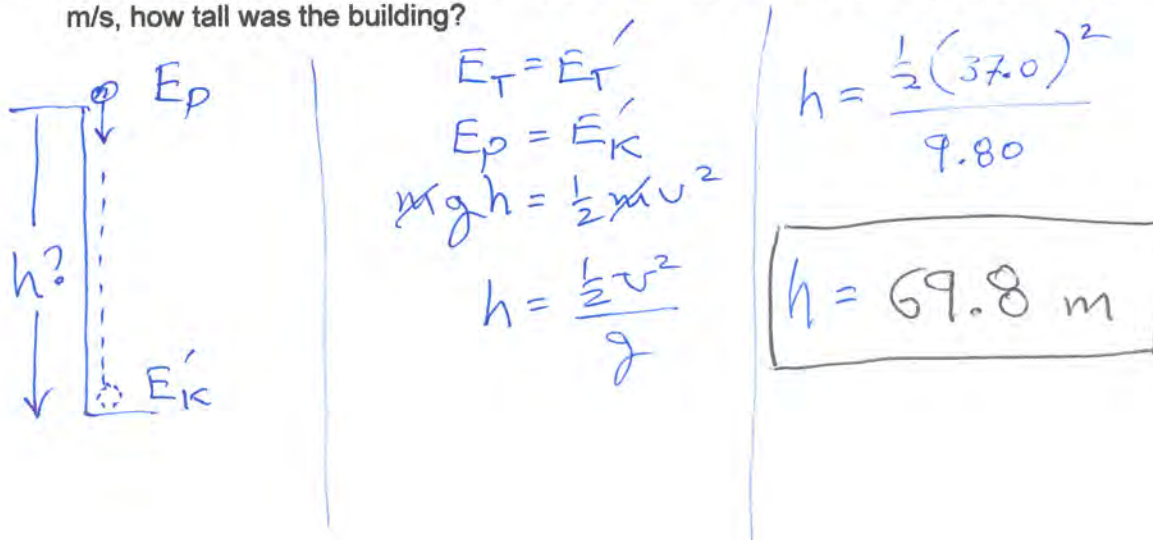 m/s, how tall was the building?
Ep
h?
E'K
ET = ET'
Ep = EK'
mgh = ½mv²
h = ½v²/g
h = ½(37.0)²/9.80
h = 69.8 m